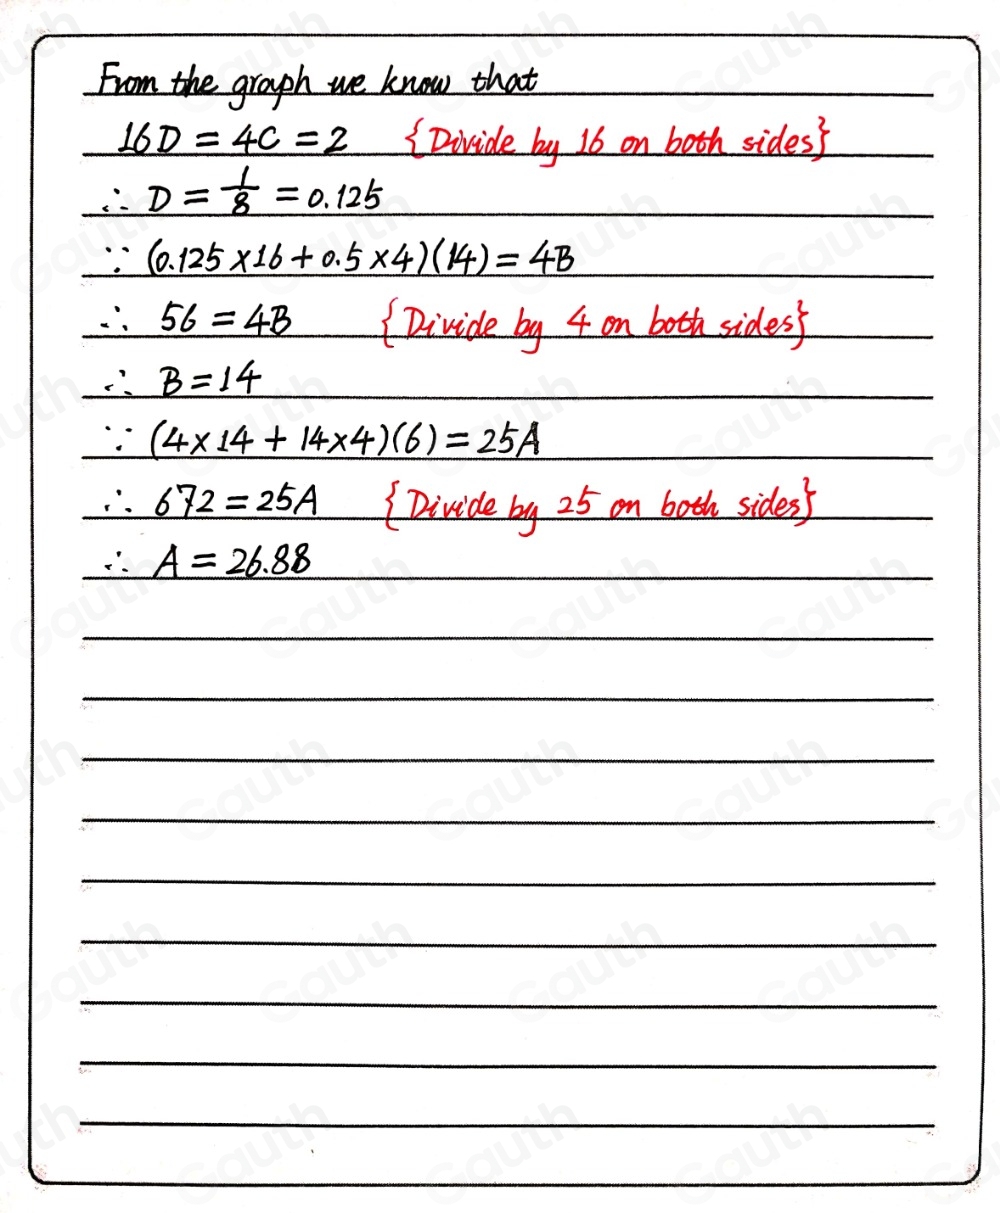 From the graph we know that
16D = 4C = 2 {Divide by 16 on both sides}
∴ D = 1/8 = 0.125
∵ (0.125 × 16 + 0.5 × 4)(14) = 4B
∴ 56 = 4B {Divide by 4 on both sides}
∴ B = 14
∵ (4 × 14 + 14 × 4)(6) = 25A
∴ 672 = 25A {Divide by 25 on both sides}
∴ A = 26.88